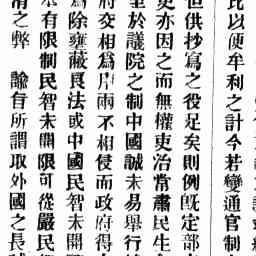 比以便牟利之計今若變通官制
但供抄寫之役足矣則例既定部
吏亦因之而無權吏治當肅民生
至於議院之制中國誠未易舉行
府交相爲用兩不相侵而政府得
爲除壅蔽良法或中國民智未開
本有限制民智未開限可從嚴民
清之弊　諭旨所謂取外國之長